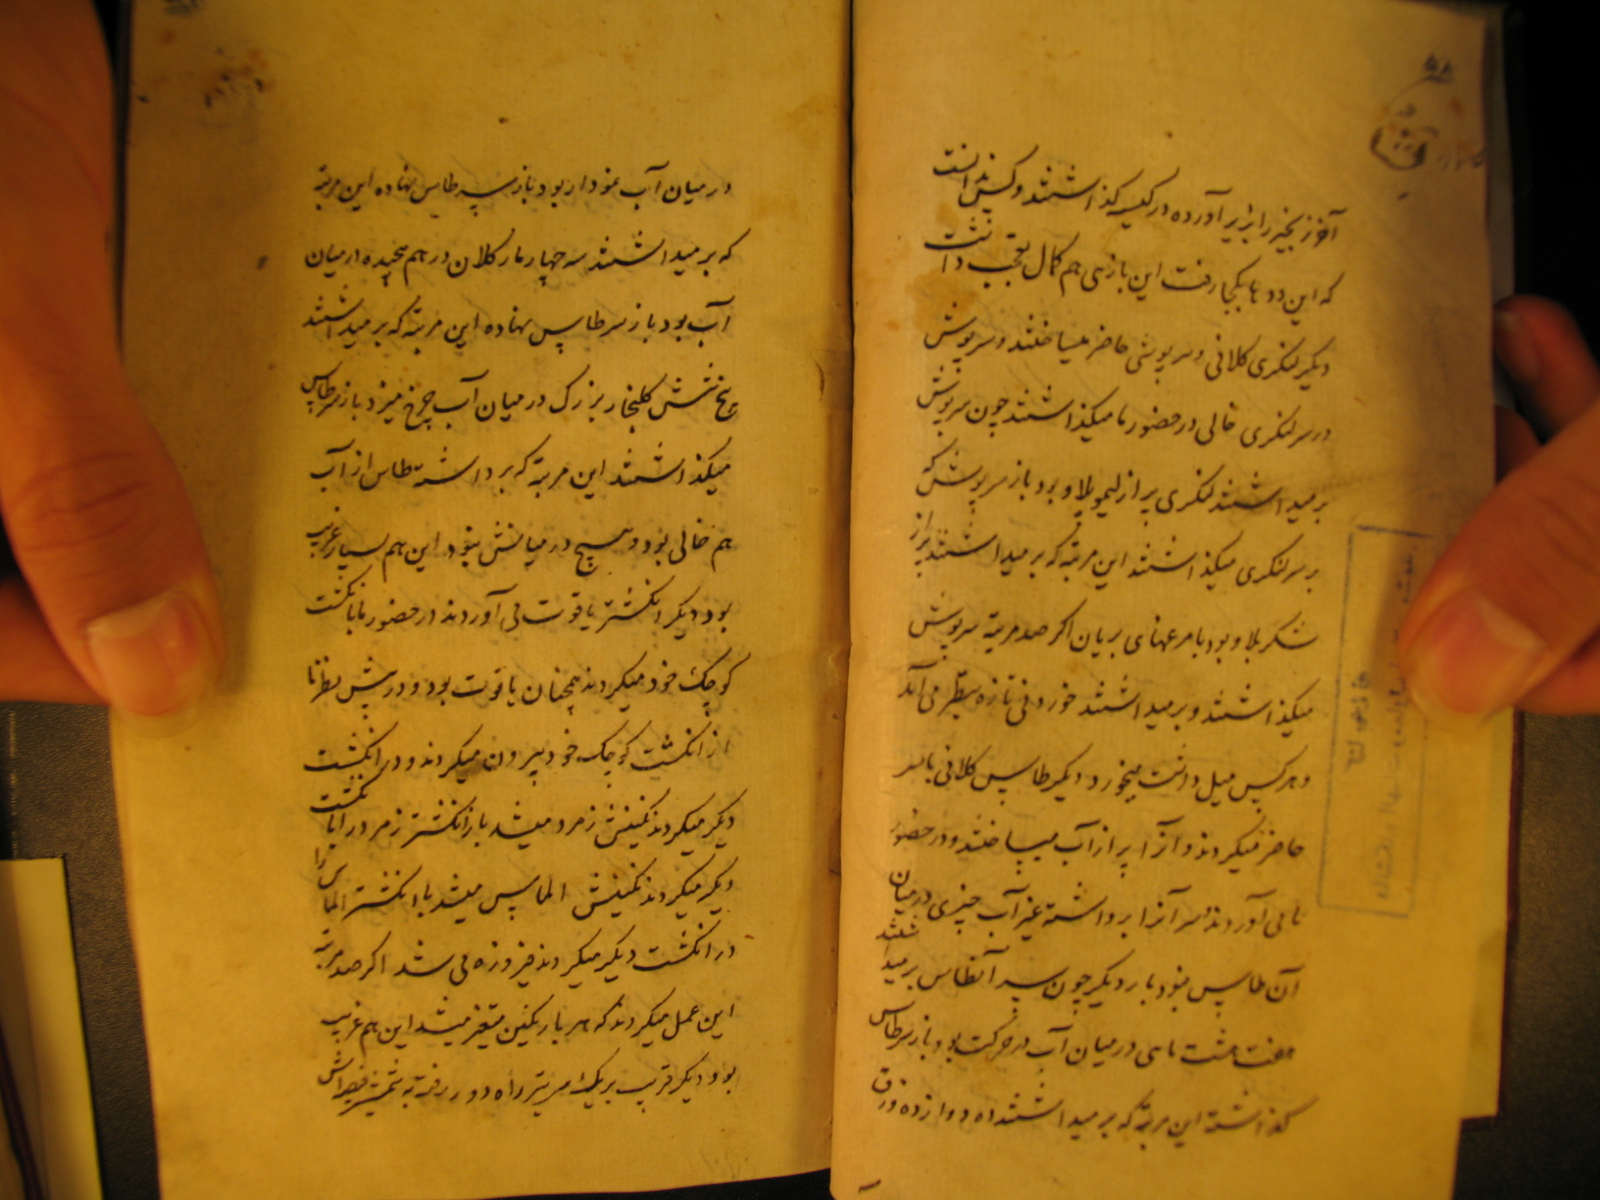 ۵۸
آخر زنجیر را بزیر آورده در کیسه گذاشتند و کس ندانست
که این دد ها بکجا رفت این بازی هم کمال تعجب داشت
دیگر لنگری کلانی و سرپوشی حاضر میساختند و سرپوش
در سر لنگری خالی در حضور ما میگذاشتند چون سرپوش
برمیداشتند لنگری پر از لیموپلاو بود باز سرپوش که
بر سر لنگری میگذاشتند این مرتبه که برمیداشتند پر از
شکر پلاو بود با مرغهای بریان اگر صد مرتبه سرپوش
میگذاشتند و برمیداشتند خوردنی تازه بنظر می آمد
و هر کس میل داشت میخورد دیگر طاس کلانی با سر
حاضر میکردند و آنرا پر از آب میساختند و در حضور
ما می آوردند و سر آنرا برداشته غیر آب چیزی در میان
آن طاس نبود بار دیگر چون سر آنطاس برمیداشتند
هفت هشت ماهی در میان آب در حرکت بود باز سر طاس
گذاشته این مرتبه که برمیداشتند ده دوازده وزق
در میان آب نمودار بود باز سر طاس نهاده این مرتبه
که برمیداشتند سه چهار مار کلان در هم پیچیده در میان
آب بود باز سر طاس نهاده این مرتبه که برمیداشتند
پنج شش کلنجار بزرگ در میان آب چرخ میزد باز سر طاس
میگذاشتند این مرتبه که برداشته طاس از آب
هم خالی بود و هیچ در میانش نبود این هم بسیار غریب
بود دیگر انگشتر یاقوت می آوردند در حضور ما بانگشت
کوچک خود میکردند همچنان یاقوت بود و در پیش نظر ما
از انگشت کوچک خود بیرون میکردند و در انگشت
دیگر میکردند نگینش زمرد میشد باز انگشتر زمرد را بانگشت
دیگر میکردند نگینش الماس میشد باز انگشتر الماس را
در انگشت دیگر میکردند فیروزه می شد اگر صد مرتبه
این عمل میکردند که هر بار نگین متغیر میشد این هم غریب
بود دیگر قریب بریک سر تیر راه دور رفته به شمشیر